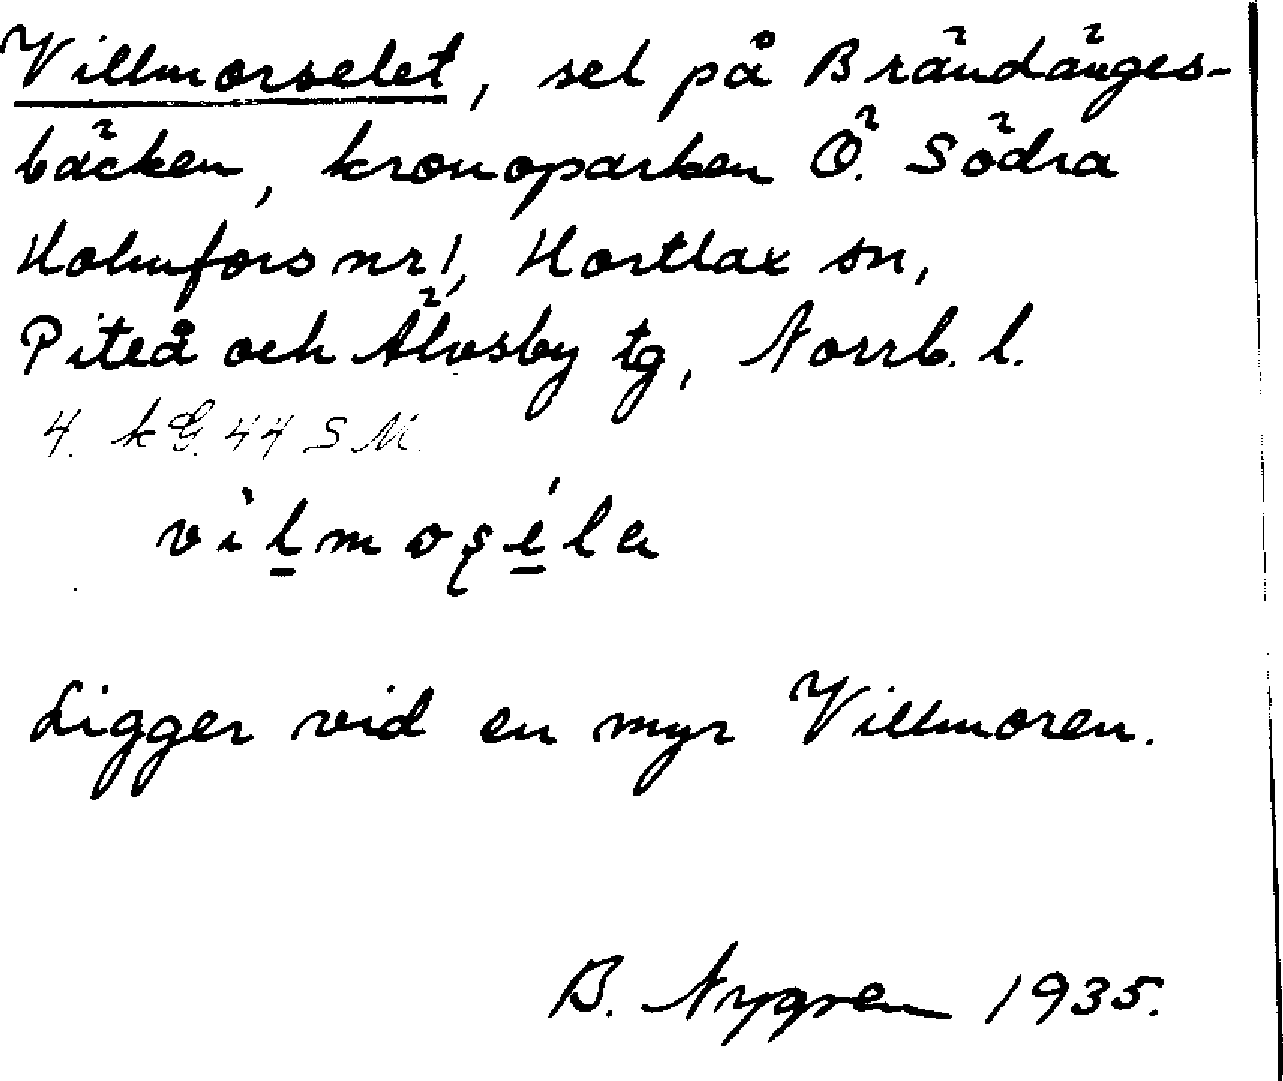 Villmorselet, sel på Brändänges-
bäcken, kronoparken Ö. Södra
Holmfors nr 1, Hortlax sn,
Piteå och Älvsby tg, Norrb. l.
4. k G. 44 S M.
vìlmoʂéla
Ligger vid en myr Villmoren.
B. Nygren 1935.